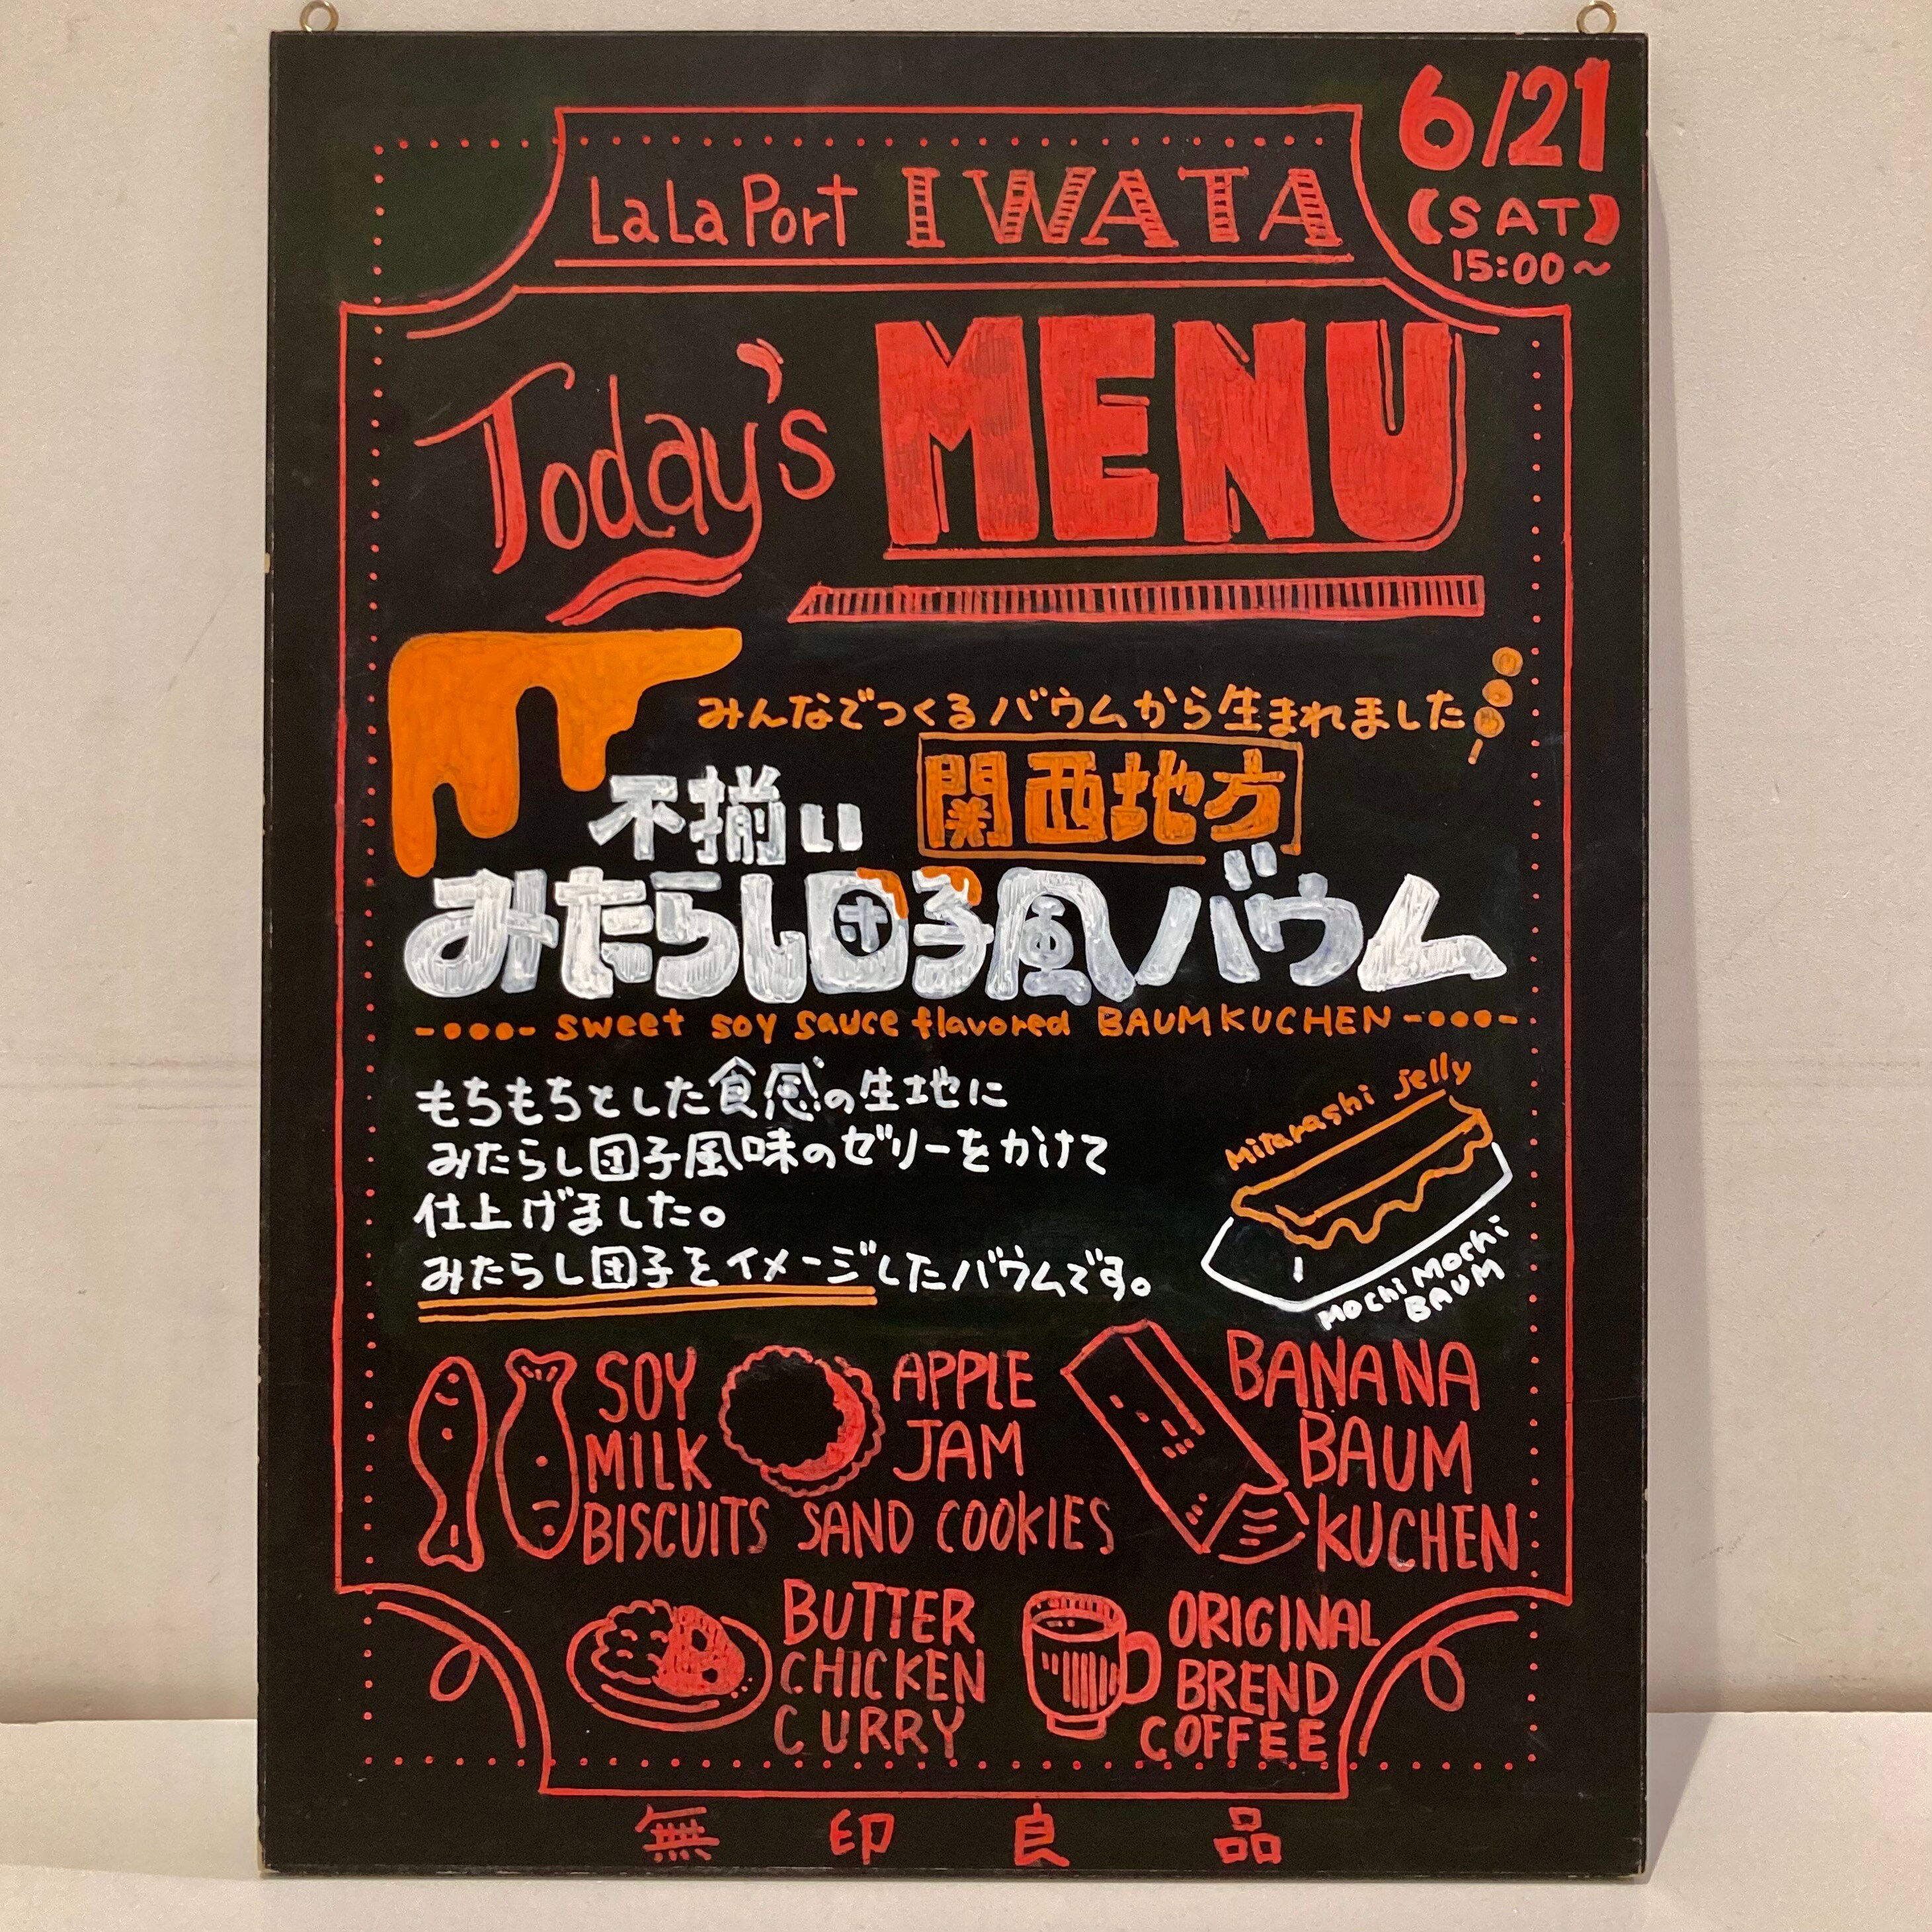 6/21
(SAT)
15:00~
LaLaPort IWATA
Today's MENU
みんなでつくるバウムから生まれました!
不揃い 関西地方
みたらし団子風バウム
sweet soy sauce flavored BAUMKUCHEN
もちもちとした食感の生地に
みたらし団子風味のゼリーをかけて
仕上げました。
みたらし団子をイメージしたバウムです。
Mitarashi jelly
Mochi Mochi
BAUM
SOY
MILK
BISCUITS
APPLE
JAM
SAND COOKIES
BANANA
BAUM
KUCHEN
BUTTER
CHICKEN
CURRY
ORIGINAL
BREND
COFFEE
無印良品